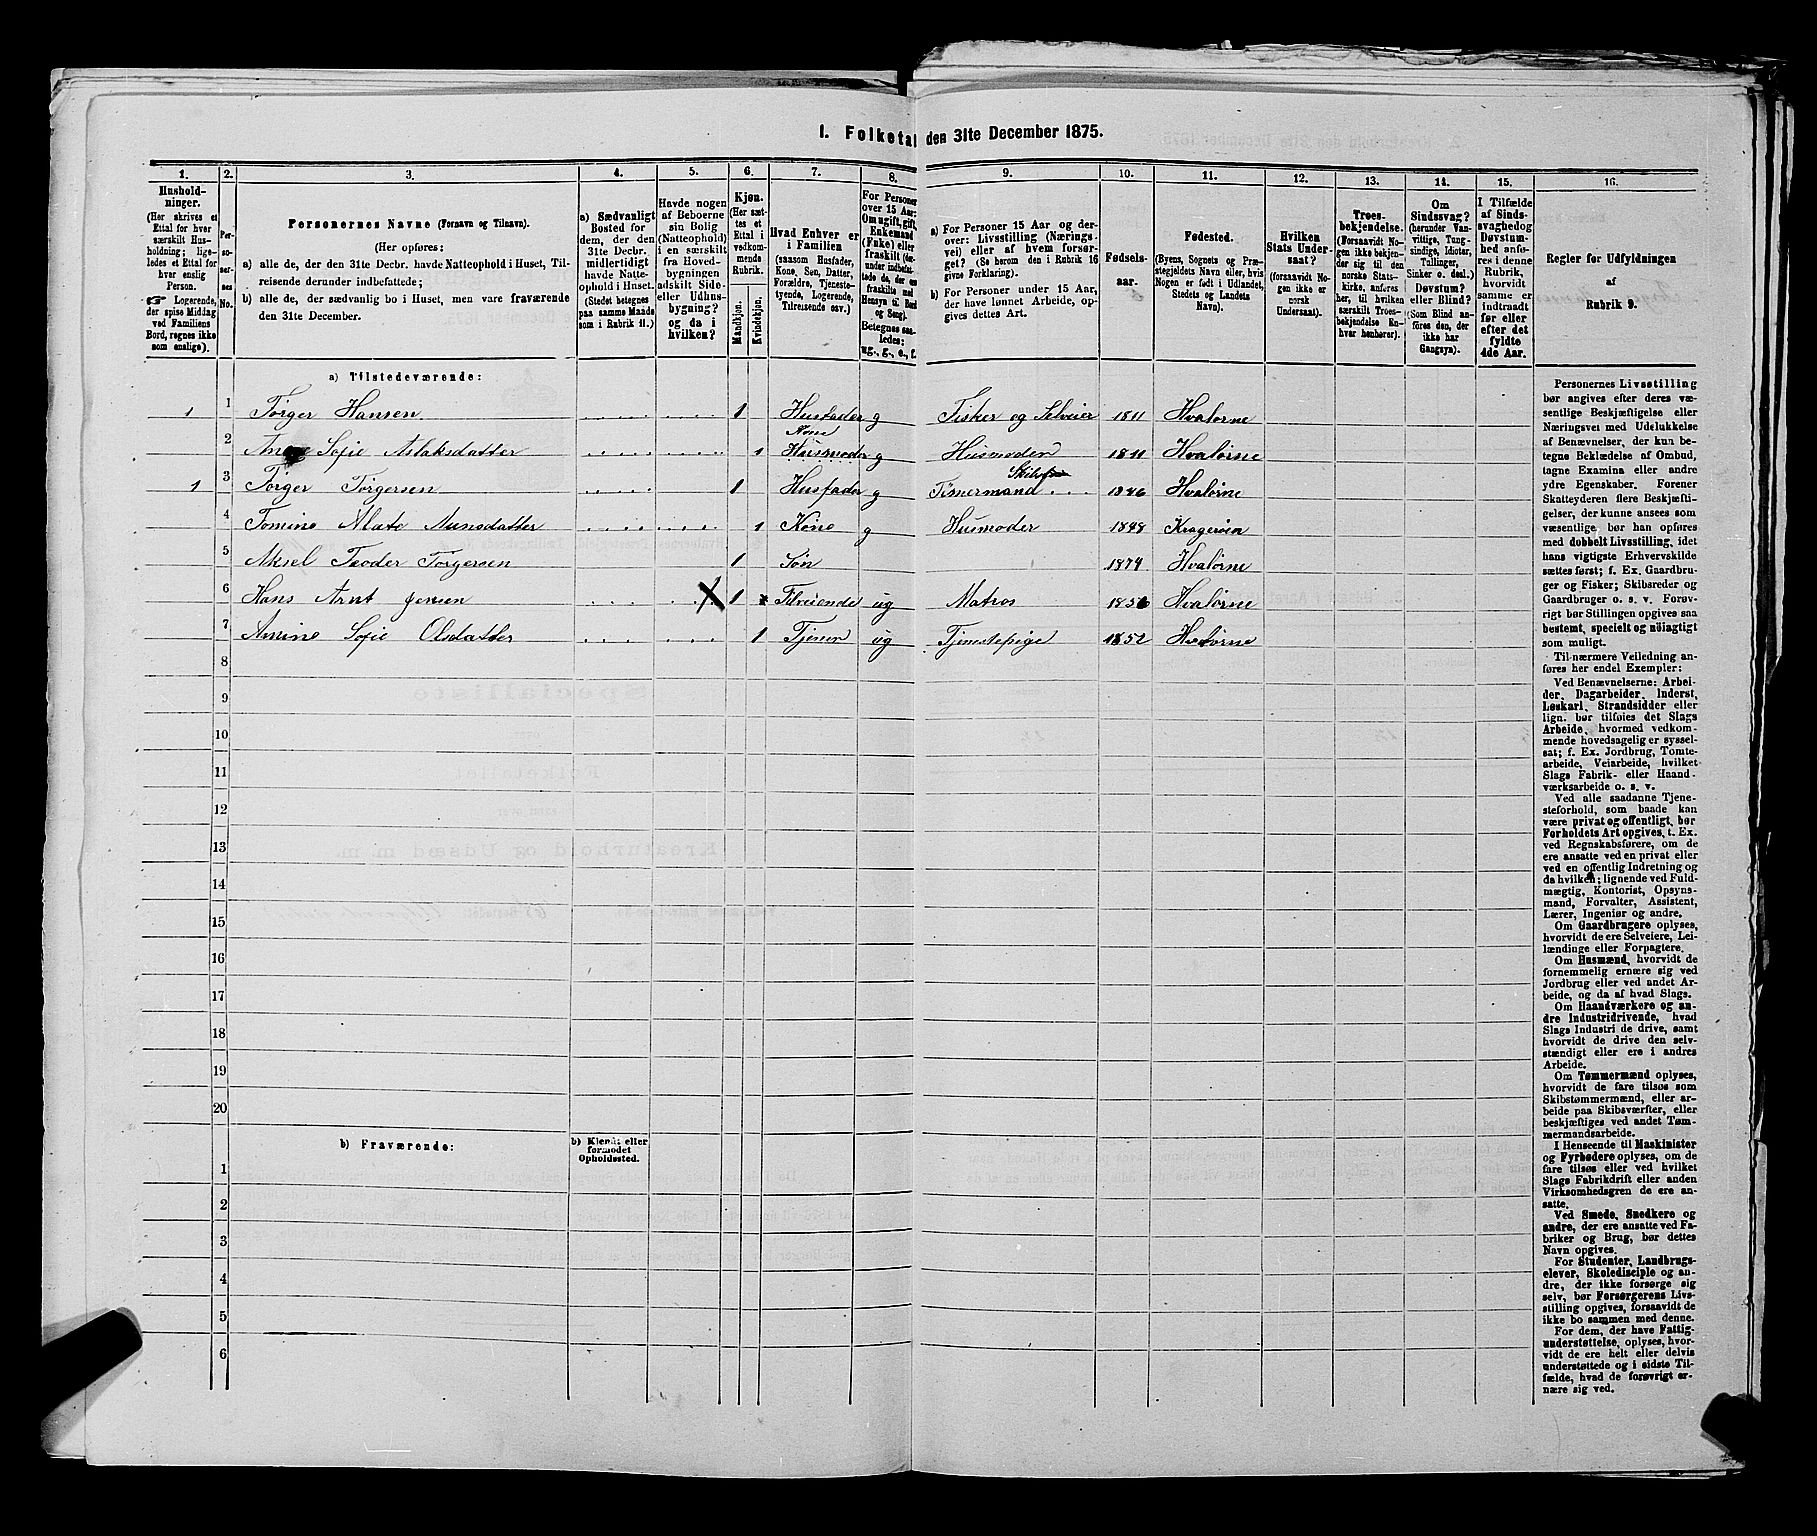 1. Folketal den 31te December 1875.
1. 2. 3. 4. 5. 6. 7. 8. 9. 10. 11. 12. 13. 14. 15. 16.
Hushold-
ninger.
(Her skrives et
Ettal for hver
særskilt Hus-
holdning; lige-
ledes et Ettal for
hver enslig
Person.
☞ Logerende,
der spise Middag
ved Familiens
Bord, regnes ikke
som enslige).
Per-
so-
ner-
nes
No.
Personernes Navne (Fornavn og Tilnavn).
(Her opføres:
a) alle de, der den 31te Decbr. havde Natteophold i Huset, Til-
reisende derunder indbefattede;
b) alle de, der sædvanlig bo i Huset, men vare fraværende
den 31te December.
a) Sædvanligt
Bosted for
dem, der den
31te Decbr.
midlertidigt
havde Natte-
ophold i Huset.
(Stedet betegnes
paa samme Maade
som i Rubrik 11.)
Havde nogen
af Beboerne
sin Bolig
(Natteophold)
i en særskilt
fra Hoved-
bygningen
adskilt Side-
eller Udhus-
bygning?
og da i
hvilken?
Kjøn.
(Her sæt-
tes et
Ettal i
vedkom-
mende
Rubrik.
Mandkjøn.
Kvindekjøn.
Hvad Enhver er
i Familien
(saasom Husfader,
Kone, Søn, Datter,
Forældre, Tjeneste-
tyende, Logerende,
Tilreisende osv.)
For Personer
over 15 Aar:
Om ugift, gift,
Enkemand
(Enke) eller
fraskilt
Betegnes saa-
ledes:
ug., g., e., f.
a) For Personer 15 Aar og der-
over: Livsstilling (Nærings-
vei) eller af hvem forsør-
get? (Se herom den i Rubrik 16
givne Forklaring).
b) For Personer under 15 Aar,
der have lønnet Arbeide, op-
gives dettes Art.
Fødsels-
aar.
Fødested.
(Byens, Sognets og Præ-
stegjeldets Navn eller, hvis
Nogen er født i Udlandet,
Stedets og Landets
Navn).
Hvilken
Stats Under-
saat?
(forsaavidt No-
gen ikke er
norsk
Undersaat).
Troes-
bekjendelse.
(Forsaavidt No-
gen ikke bekjen-
der sig til den
norske Stats-
kirke, anføres
her, til hvilken
særskilt Troes-
bekjendelse En-
hver henhører).
Om
Sindssvag?
(herunder Van-
vittige, Tung-
sindige, Idioter,
Tullinger,
Sinker o. desl.)
Døvstum?
eller Blind?
(Som Blind an-
føres den, der
ikke har
Gangsyn).
I Tilfælde
af Sinds-
svaghed og
Døvstum-
hed anfø-
res i denne
Rubrik,
hvorvidt
samme er
indtraadt
før eller
efter det
fyldte
4de Aar.
Regler for Udfyldningen
af
Rubrik 9.
a) Tilstedeværende:
1 1 Torger Hansen 1 Husfader g Fisker og Selveier 1811 Hvalørne
Kone
2 Sofie Aslaksdatter 1 Husmoder g Husmoder 1811 Hvalørne
1 3 Torger Torgersen 1 Husfader g Tømermand 1846 Hvalørne
4 Tomine 1 Kone g Husmoder 1848 Kragerøen
5 Aksel Teoder Torgersen 1 Søn 1874 Hvalørne
6 Hans Arnt Jensen 1 ug Matros 1856 Hvalørne
7 Amine Sofie Olsdatter 1 Tjener ug Tjenestepige 1852 Hvalørne
8
9
10
11
12
13
14
15
16
17
18
19
20
b) Fraværende:
b) Kjendt eller
formodet
Opholdssted.
1
2
3
4
5
6
Personernes Livsstilling
bør angives efter deres væ-
sentlige Beskjæftigelse eller
Næringsvei med Udelukkelse
af Benævnelser, der kun be-
tegne Beklædelse af Ombud,
tagne Examina eller andre
ydre Egenskaber. Forener
Skatteyderen flere Beskjæfti-
gelser, der kunne ansees som
væsentlige, bør han opføres
med dobbelt Livsstilling, idet
hans vigtigste Erhvervskilde
sættes først; f. Ex. Gaardbru-
ger og Fisker; Skibsreder og
Gaardbruger o. s. v. Forøv-
rigt bør Stillingen opgives saa
bestemt, specielt og nöiagtigt
som muligt.
Til nærmere Veiledning an-
føres her endel Exempler:
Ved Benævnelserne: Arbei-
der, Dagarbeider, Inderst,
Løskarl, Strandsidder eller
lign. bør tilføies det Slags
Arbeide, hvormed vedkom-
mende hovedsagelig er syssel-
sat; f. Ex. Jordbrug, Tomte-
arbeide, Veiarbeide, hvilket
Slags Fabrik- eller Haand-
værksarbeide o. s. v.
Ved alle saadanne Tjene-
steforhold, som baade kan
være privat og offentligt, bør
Forholdets Art opgives, t. Ex.
ved Regnskabsførere, om de
ere ansatte ved en privat eller
ved en offentlig Indretning og
da hvilken; lignende ved Fuld-
mægtig, Kontorist, Opsyns-
mand, Forvalter, Assistent,
Lærer, Ingeniør og andre.
Om Gaardbrugere oplyses,
hvorvidt de ere Selveiere, Lei-
lændinge eller Forpagtere.
Om Husmænd, hvorvidt de
fornemmelig ernære sig ved
Jordbrug eller ved andet Ar-
beide, og da af hvad Slags.
Om Haandværkere og an-
dre Industridrivende, hvad
Slags Industri de drive, samt
hvorvidt de drive den selv-
stændigt eller ere i andres
Arbeide.
Om Tømmermænd oplyses,
hvorvidt de fare tilsøs som
Skibstømmermænd, eller ar-
beide paa Skibsværfter, eller
beskjæftiges ved andet Tøm-
mermandsarbeide.
I Henseende til Maskinister
og Fyrbødere oplyses, om de
fare tilsøs eller ved hvilket
Slags Fabrikdrift eller anden
Virksomhedsgren de ere an-
satte.
Ved Smede, Snedkere og
andre, der ere ansatte ved Fa-
briker og Brug, bør dettes
Navn opgives.
For Studenter, Landbrugs-
elever, Skoledisciple og an-
dre, der ikke forsørge sig
selv, bør Forsørgerens Livs-
stilling opgives, forsaavidt de
ikke bo sammen med denne.
For dem, der have Fattig-
understøttelse, oplyses, hvor-
vidt de ere helt eller delvis
understøttede og i sidste Til-
fælde, hvad de forøvrigt er-
nære sig ved.